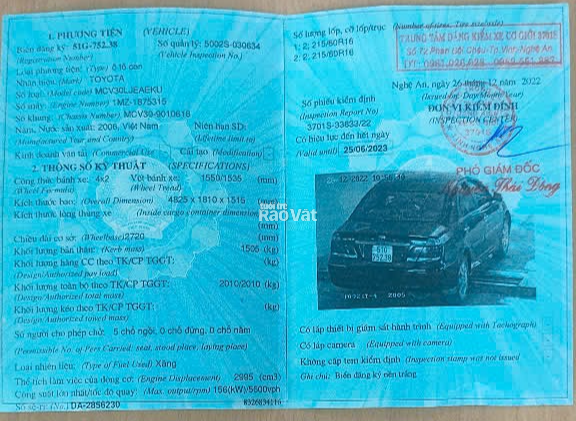 1. PHƯƠNG TIỆN (VEHICLE)
Biển đăng ký: 51G-752.38 Số quản lý: 5002S-030634
(Registration Number) (Vehicle Inspection No.)
Loại phương tiện: (Type) ô tô con
Nhãn hiệu: (Mark) TOYOTA
Số loại: (Model code) MCV30LJEAEKU
Số máy: (Engine Number) 1MZ-1875315
Số khung: (Chassis Number) MCV30-9010616
Năm, Nước sản xuất: 2006, Việt Nam Niên hạn SD:
(Manufactured Year and Country) (Lifetime limit to)
Kinh doanh vận tải: (Commercial Use) Cải tạo (Modification)
2. THÔNG SỐ KỸ THUẬT (SPECIFICATIONS)
Công thức bánh xe: 4x2 Vết bánh xe: 1550/1535 (mm)
(Wheel Formula) (Wheel Tread)
Kích thước bao: (Overall Dimension) 4825 x 1810 x 1515 (mm)
Kích thước lòng thùng xe (Inside cargo container dimension)
(mm)
Chiều dài cơ sở: (Wheelbase) 2720 (mm)
Khối lượng bản thân: (Kerb mass) 1505 (kg)
Khối lượng hàng CC theo TK/CP TGGT: (kg)
(Design/Authorized pay load)
Khối lượng toàn bộ theo TK/CP TGGT: 2010/2010 (kg)
(Design/Authorized total mass)
Khối lượng kéo theo TK/CP TGGT: (kg)
(Design/Authorized towed mass)
Số người cho phép chở: 5 chỗ ngồi, 0 chỗ đứng, 0 chỗ nằm
(Permissible No. of Pers Carried: seat, stood place, laying place)
Loại nhiên liệu: (Type of Fuel Used) Xăng
Thể tích làm việc của động cơ: (Engine Displacement) 2995 (cm3)
Công suất lớn nhất/tốc độ quay: (Max. output/rpm) 156(kW)/5500vph
Số sê-ri: (No.) DA-2856230
Số lượng lốp, cỡ lốp/trục (Number of tires, Tire size/axle)
1: 2; 215/60R16
2: 2; 215/60R16
TRUNG TÂM ĐĂNG KIỂM XE CƠ GIỚI 3701S
Số 72 Phan Bội Châu, Tp. Vinh, Nghệ An
Nghệ An, ngày 26 tháng 12 năm 2022
(Issued on: Day/Month/Year)
Số phiếu kiểm định ĐƠN VỊ KIỂM ĐỊNH
(Inspection Report No) (INSPECTION CENTER)
3701S-33633/22
Có hiệu lực đến hết ngày
(Valid until) 25/06/2023
PHÓ GIÁM ĐỐC
Rao Vat
51G
752.38
Có lắp thiết bị giám sát hành trình (Equipped with Tachograph)
Có lắp camera (Equipped with camera)
Không cấp tem kiểm định (Inspection stamp was not issued)
Ghi chú: Biển đăng ký nền trắng